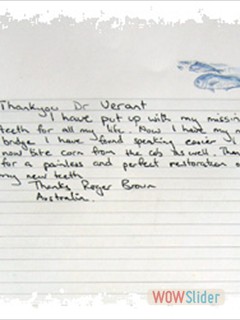 Thankyou Dr Verant
I have put up with my missin
teeth for all my life. Now I have my n
bridge I have found speaking easier & I
now bite corn from the cob as well. Than
for a painless and perfect restoration o
my new teeth
Thanks Roger Brown
Australia.
WOWSlider